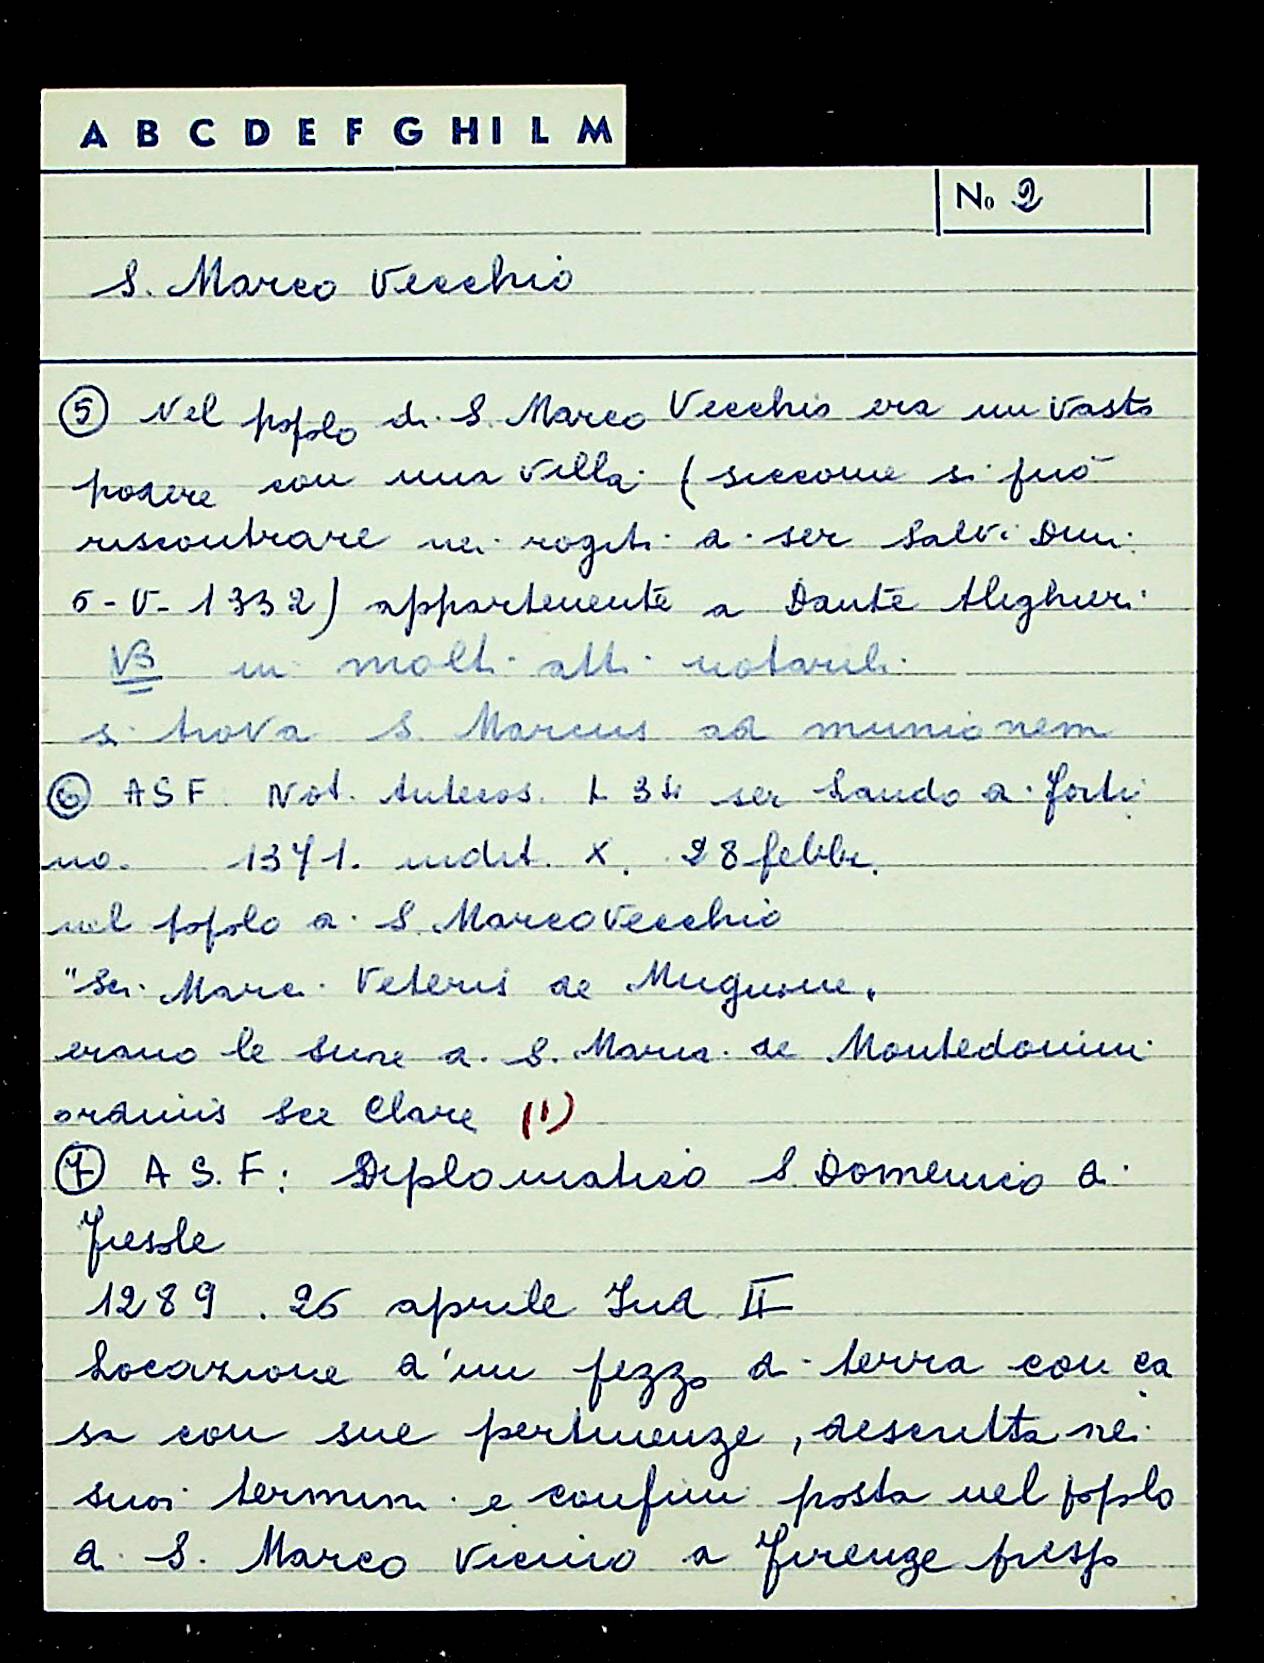 A B C D E F G H I L M
No 2
S. Marco Vecchio
⑤ Nel popolo di S. Marco Vecchio era un vasto
podere con una villa (siccome si può
riscontrare nei rogiti di ser Salvi Dini
6-V-1332) appartenente a Dante Alighieri
NB in molti atti notarili
si trova S. Marcus ad munionem
⑥ ASF. Not. Antecos. L 34 ser Lando di Forti
no. 1371. indit. X. 28 febbr.
nel popolo di S. Marco Vecchio
"Sci. Marci Veteris de Mugnone"
erano le suore di S. Maria de Montedomini
ordinis Sce Clare (1)
⑦ A S.F: Diplomatico S. Domenico di
Fiesole
1289. 26 aprile Ind II
Locazione d'un pezzo di terra con ca
sa con sue pertinenze, descritta nei
suoi termini e confini posta nel popolo
di S. Marco vicino a Firenze presso